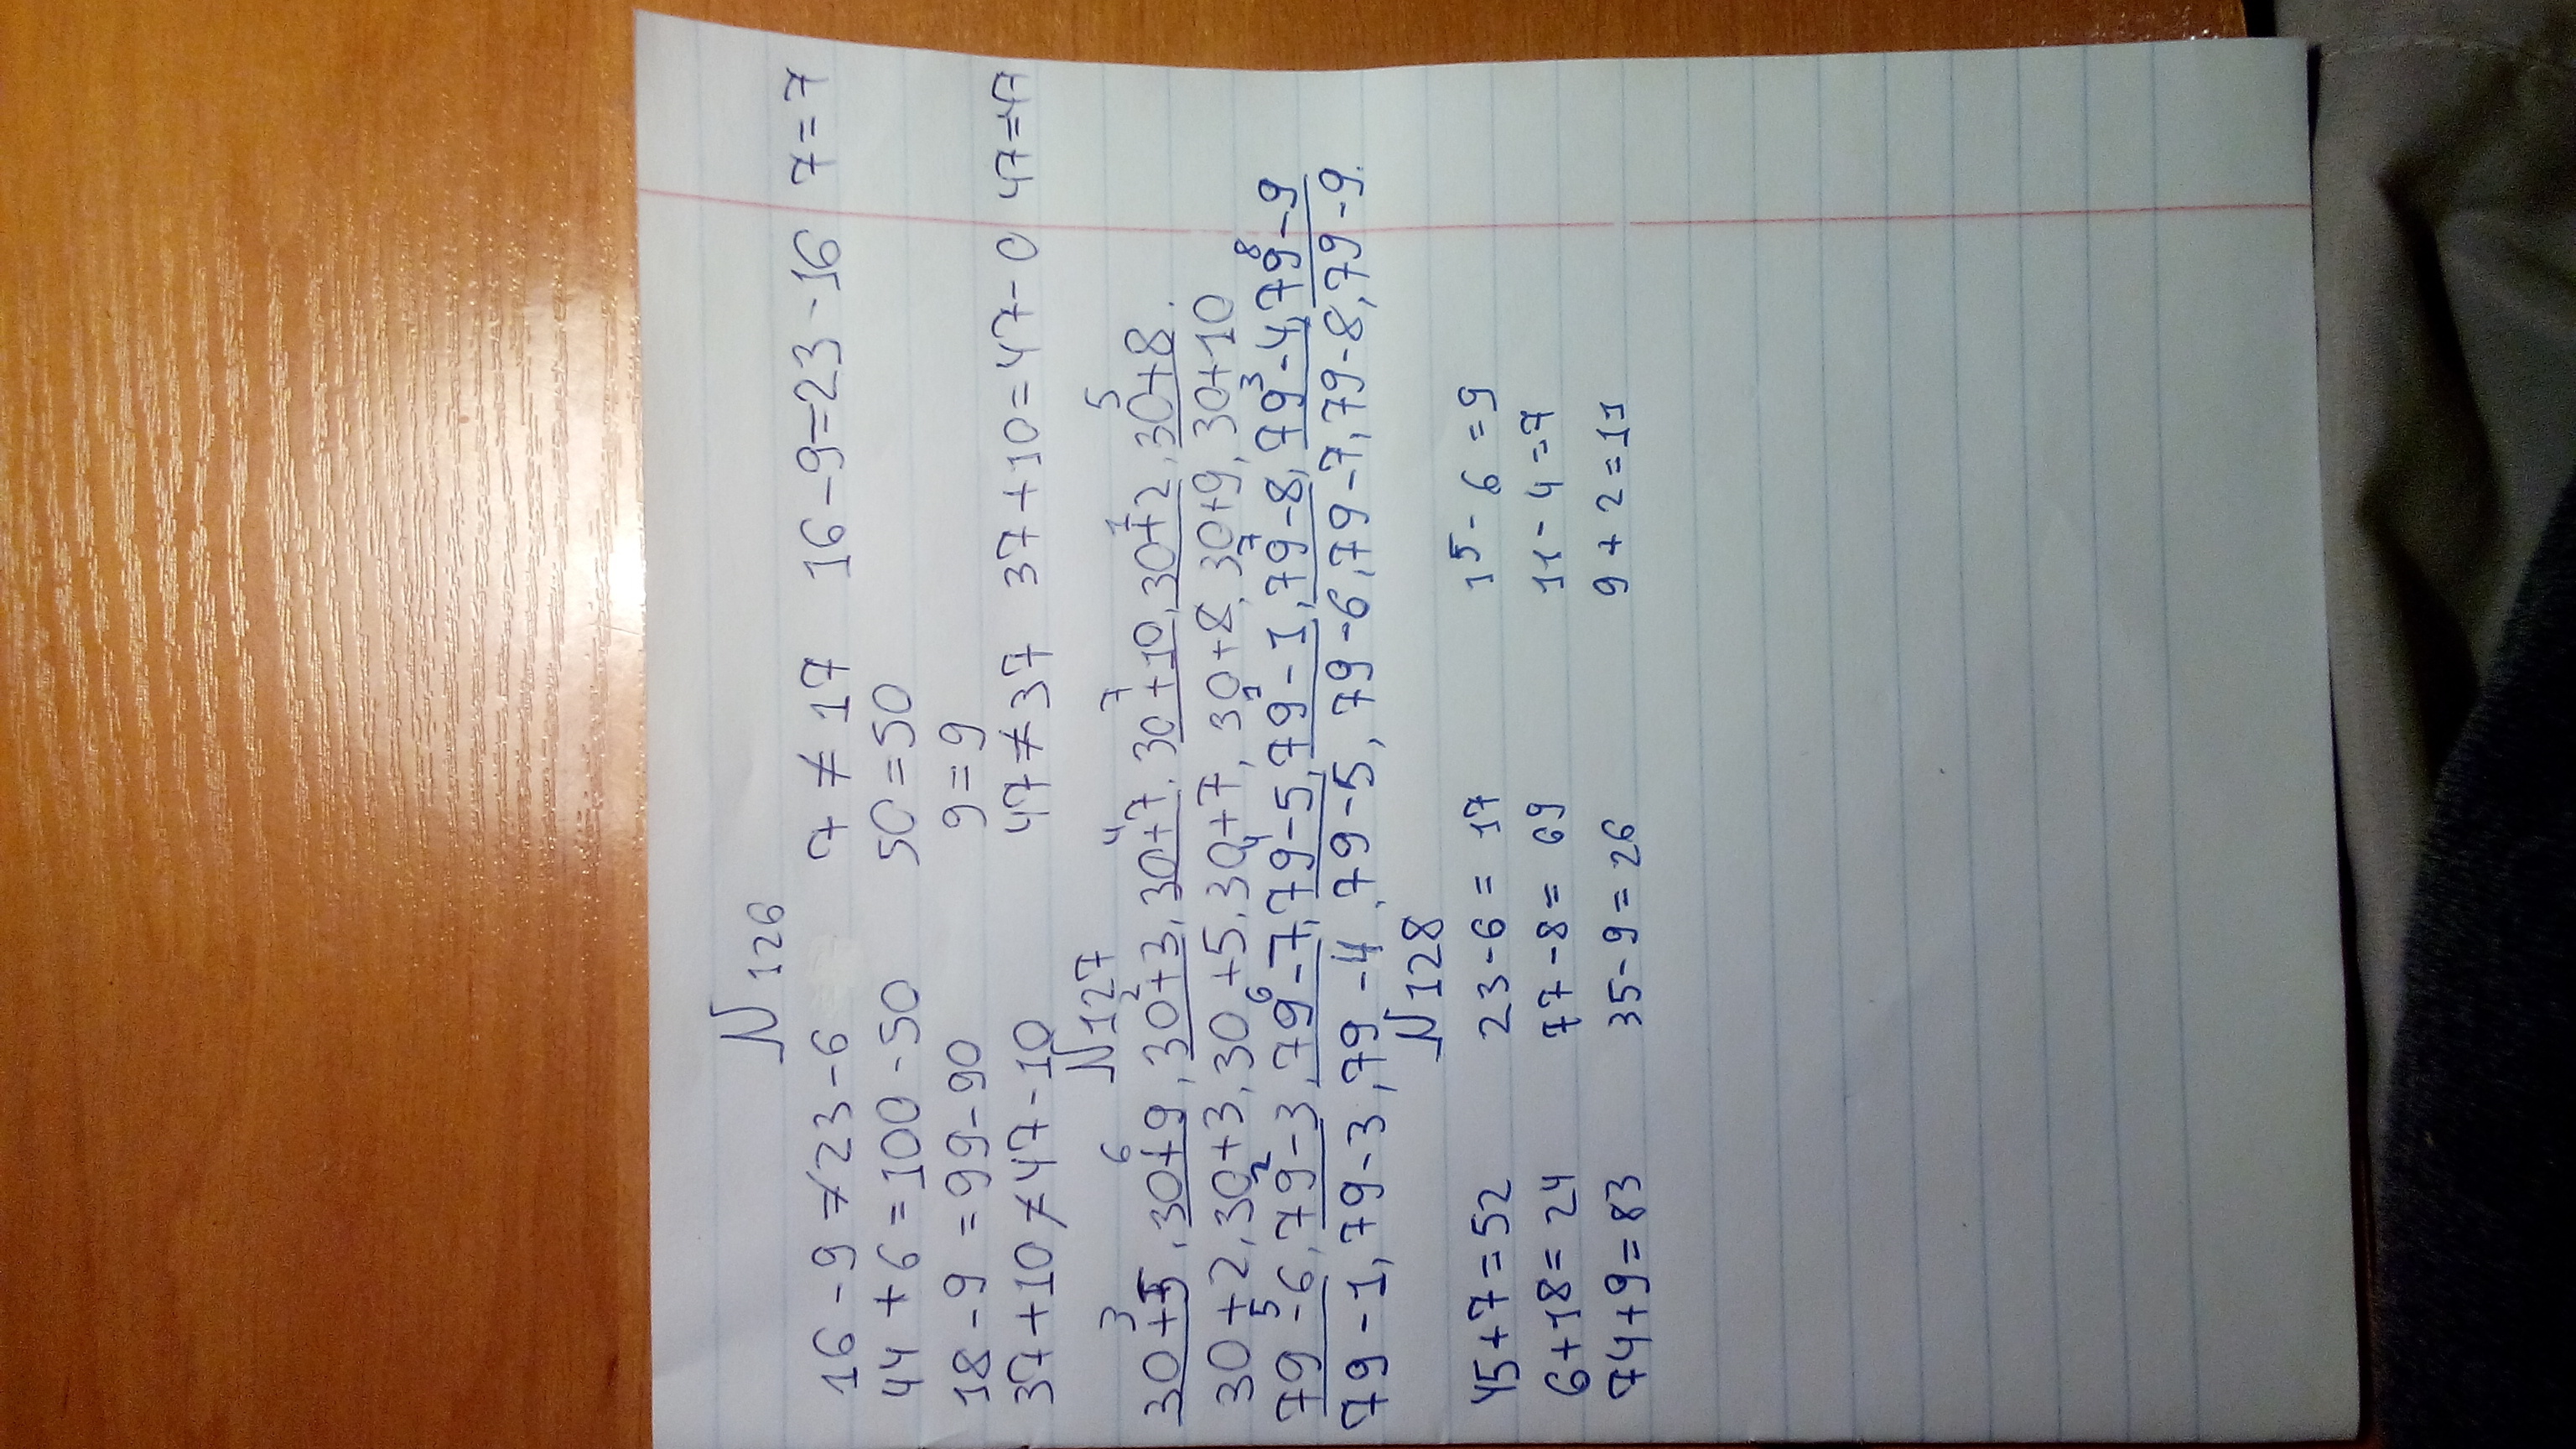 N 126
16 - 9 ≠ 23 - 6 7 ≠ 17 16 - 9 = 23 - 16 7 = 7
44 + 6 = 100 - 50 50 = 50
18 - 9 = 99 - 90 9 = 9
37 + 10 ≠ 47 - 10 47 ≠ 37 37 + 10 = 47 - 0 47 = 47
N 127
3 6 2 4 7 1 5
30 + 5, 30 + 9, 30 + 3, 30 + 7, 30 + 10, 30 + 2, 30 + 8.
30 + 2, 30 + 3, 30 + 5, 30 + 7, 30 + 8, 30 + 9, 30 + 10
5 2 6 4 1 7 3 8
79 - 6, 79 - 3, 79 - 7, 79 - 5, 79 - 1, 79 - 8, 79 - 4, 79 - 9
79 - 1, 79 - 3, 79 - 4, 79 - 5, 79 - 6, 79 - 7, 79 - 8, 79 - 9.
N 128
45 + 7 = 52 23 - 6 = 17 15 - 6 = 9
6 + 18 = 24 77 - 8 = 69 11 - 4 = 7
74 + 9 = 83 35 - 9 = 26 9 + 2 = 11